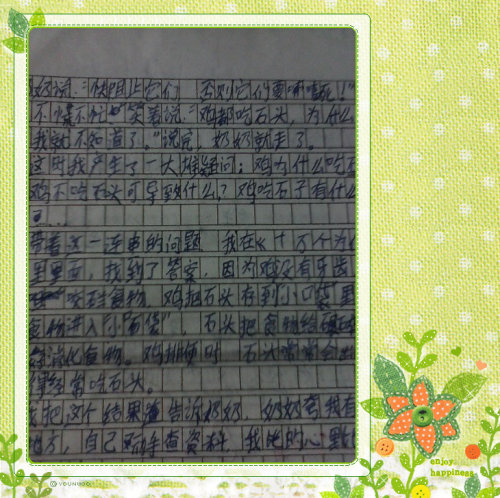 奶说:"快阻止它们 否则它们要噎死!"
不慌不忙 笑着说:"鸡都吃石头,为什么
我就不知道了。"说完,奶奶就走了。
这时我产生了一大堆疑问:鸡为什么吃石
鸡不吃石头可导致什么?鸡吃石子有什么
带着这一连串的问题 我在《十万个为
里里面,找到了答案,因为鸡没有牙齿
咬碎食物,鸡把石头存到小口袋里
食物进入"小石袋",石头把食物给
消化食物。鸡排便时 石头常常会
得经常吃石头。
我把这个结果 告诉奶奶,奶奶夸我有
,自己动手查资料 我 的心里
YOUNGOO
enjoy
happiness